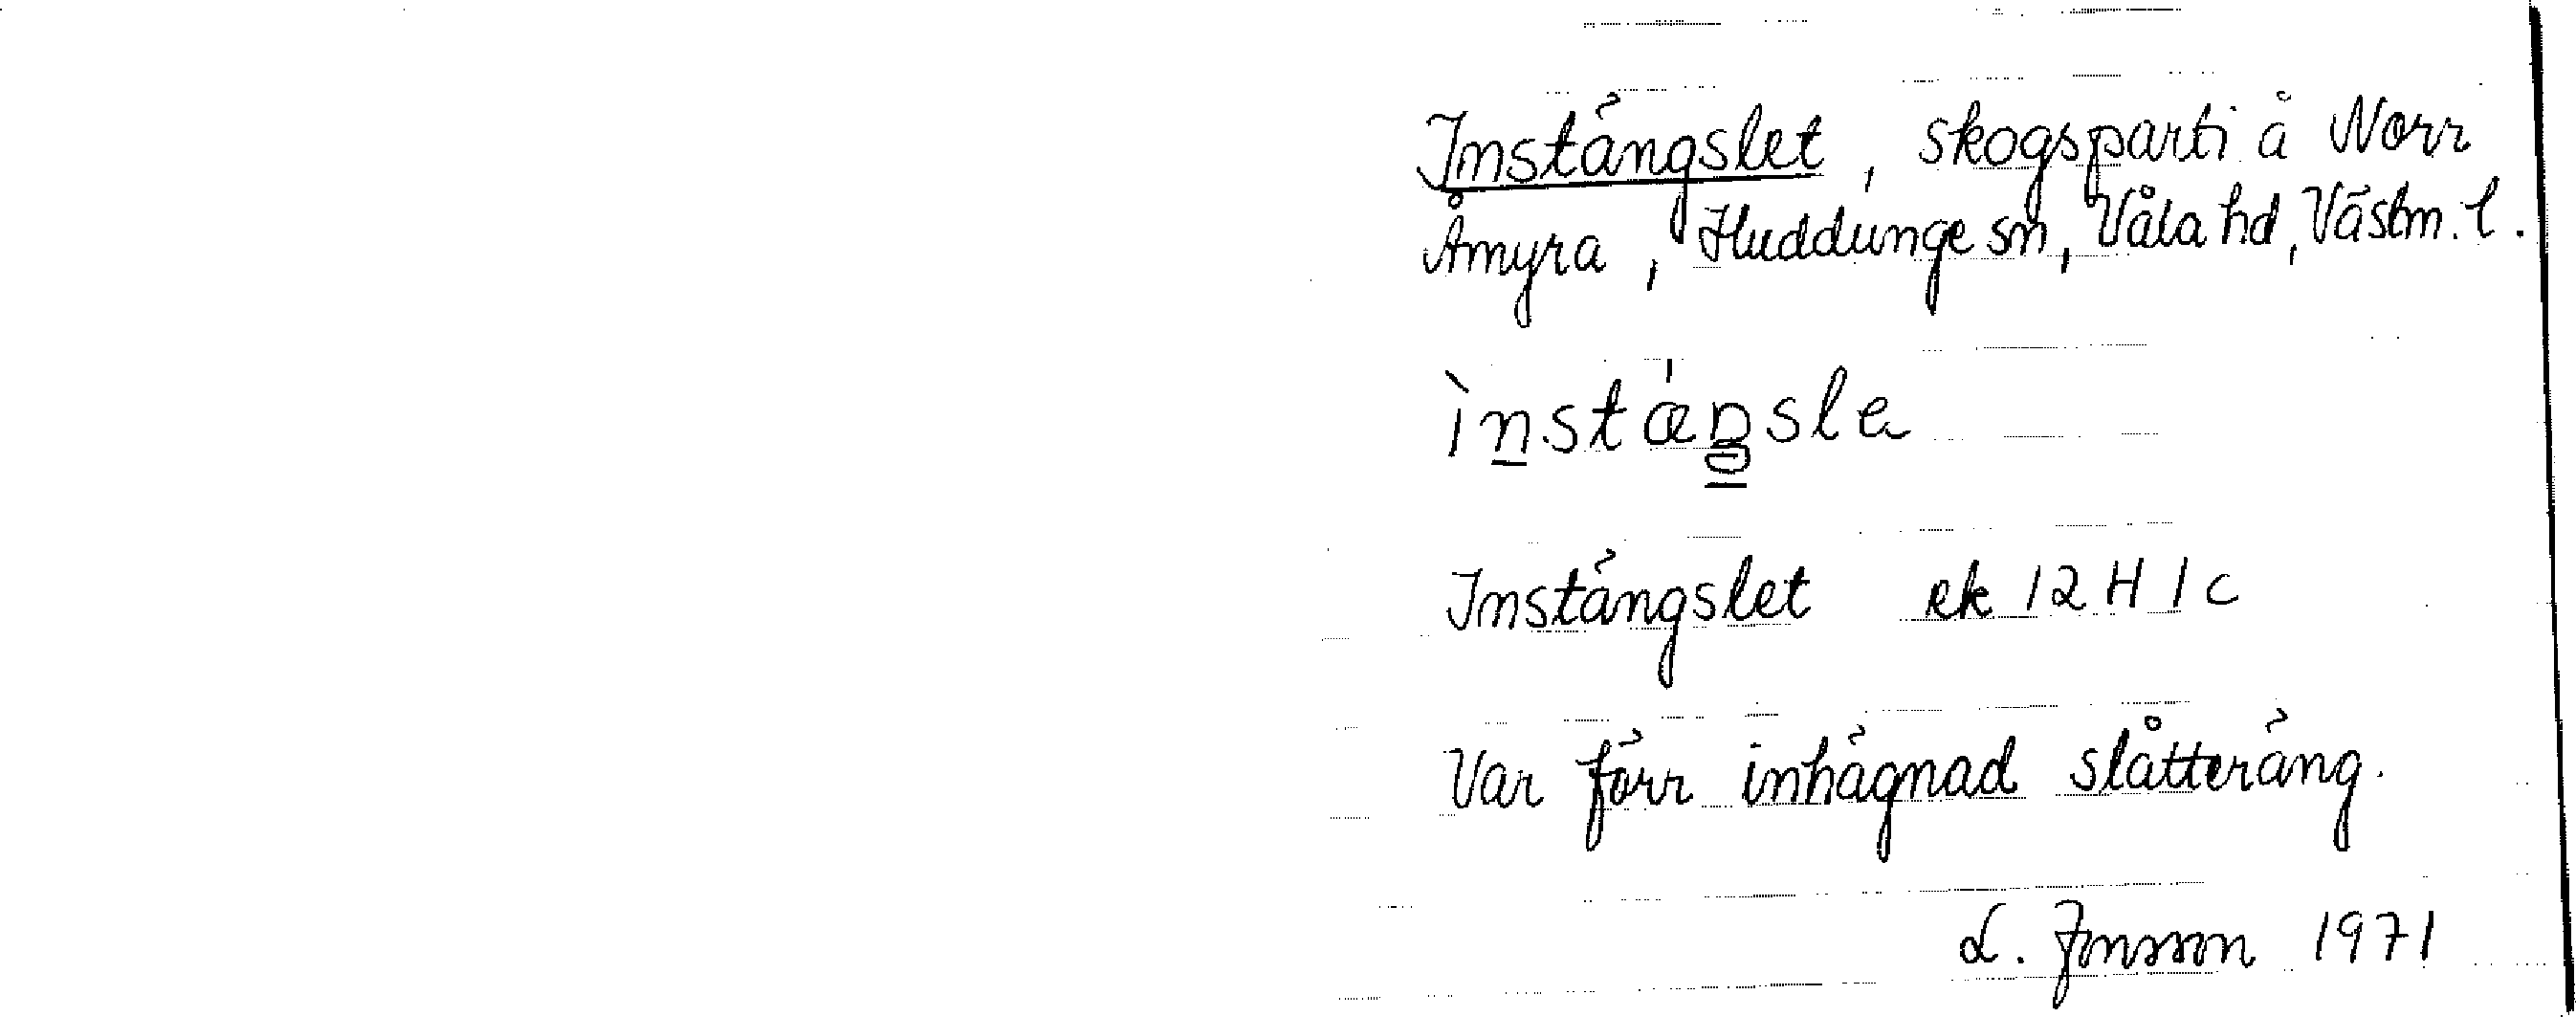 Instängslet, skogsparti å Norr
Åmyra, Huddunge sn, Våla hd, Västm. l.
ìnstæ̍ŋsle
Instängslet ek 12 H 1 c
Var förr inhägnad slåtteräng.
L. Jonsson 1971